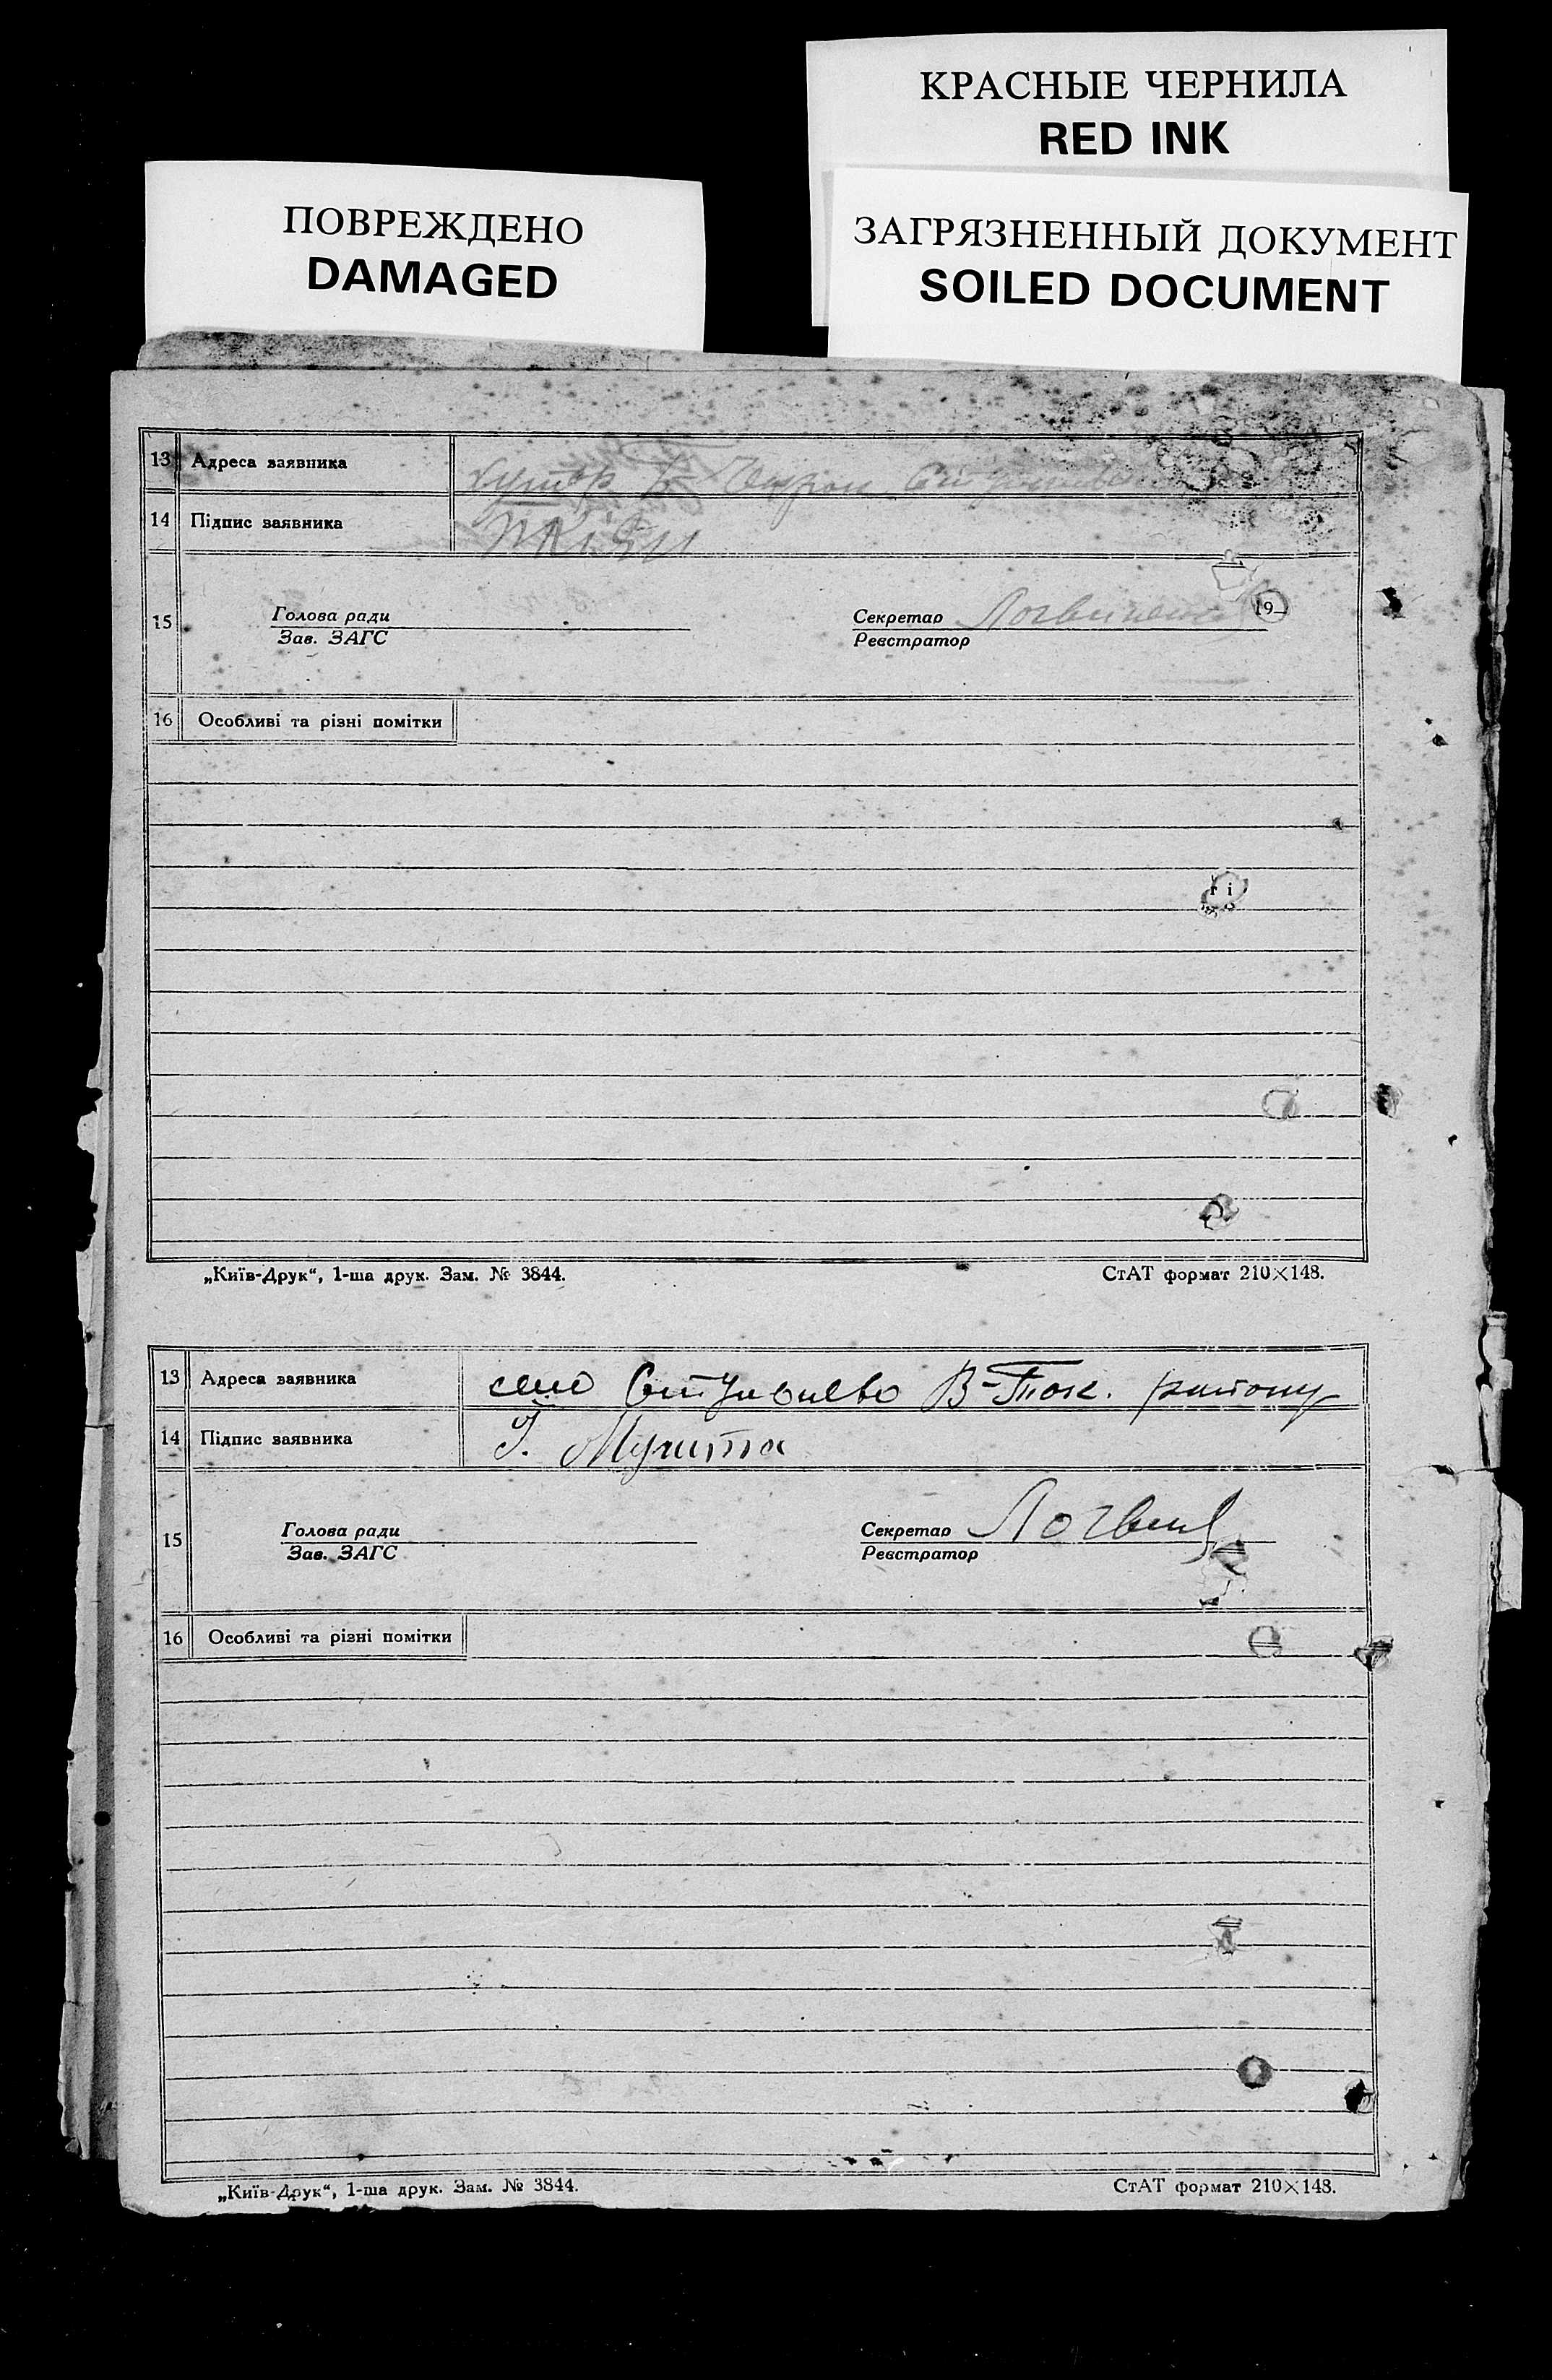 КРАСНЫЕ ЧЕРНИЛА
RED INK
ПОВРЕЖДЕНО
DAMAGED
ЗАГРЯЗНЕННЫЙ ДОКУМЕНТ
SOILED DOCUMENT
13 Адреса заявника хутор
14 Підпис заявника
15 Голова ради Секретар 19
Зав. ЗАГС Реєстратор
16 Особливі та різні помітки
„Київ-Друк“, 1-ша друк. Зам. № 3844. СтАТ формат 210×148.
13 Адреса заявника село В-Ток. району
14 Підпис заявника
15 Голова ради Секретар
Зав. ЗАГС Реєстратор
16 Особливі та різні помітки
„Київ-Друк“, 1-ша друк. Зам. № 3844. СтАТ формат 210×148.